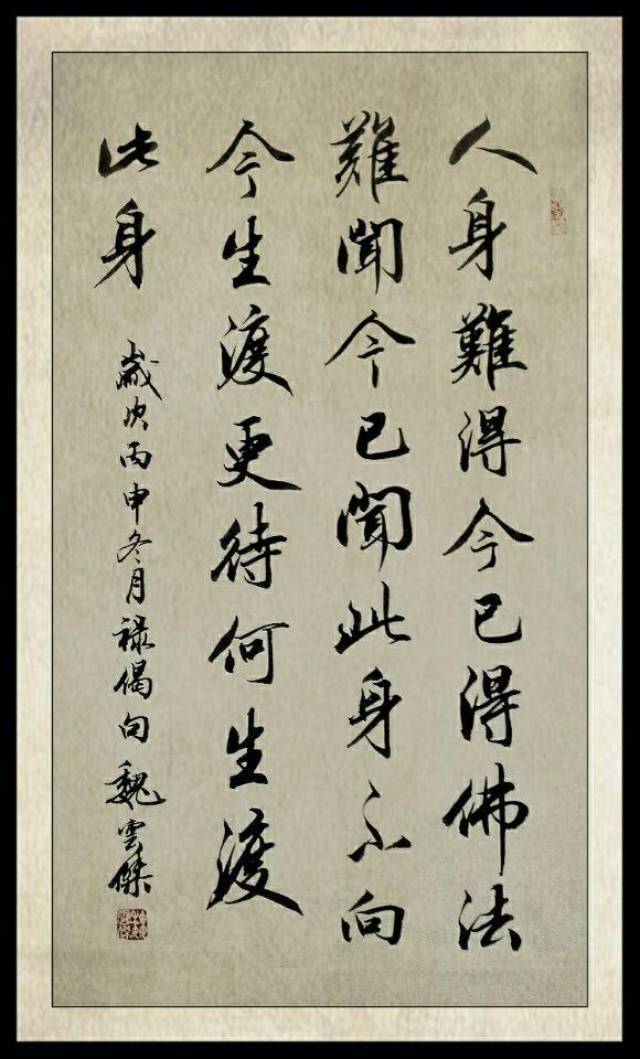 人身難得今已得佛法
難聞今已聞此身不向
今生渡更待何生渡
此身
歲次丙申冬月祿偈句魏雲傑